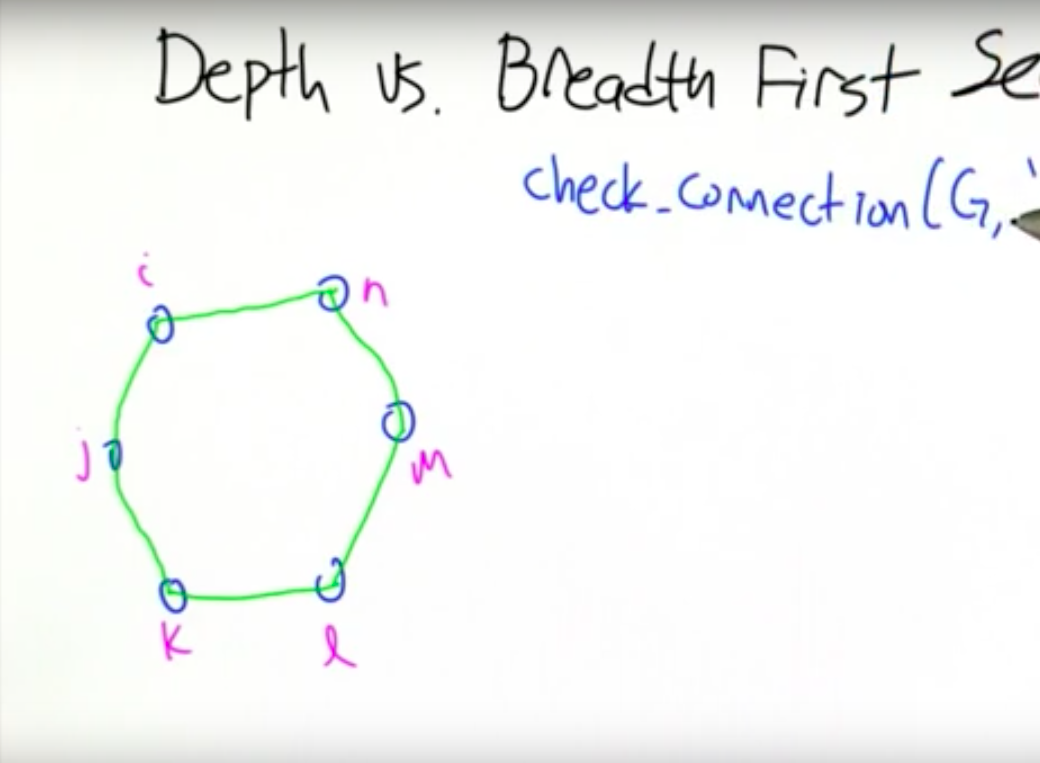 Depth vs. Breadth First Se
check_connection(G, '
i
n
j
m
k
l